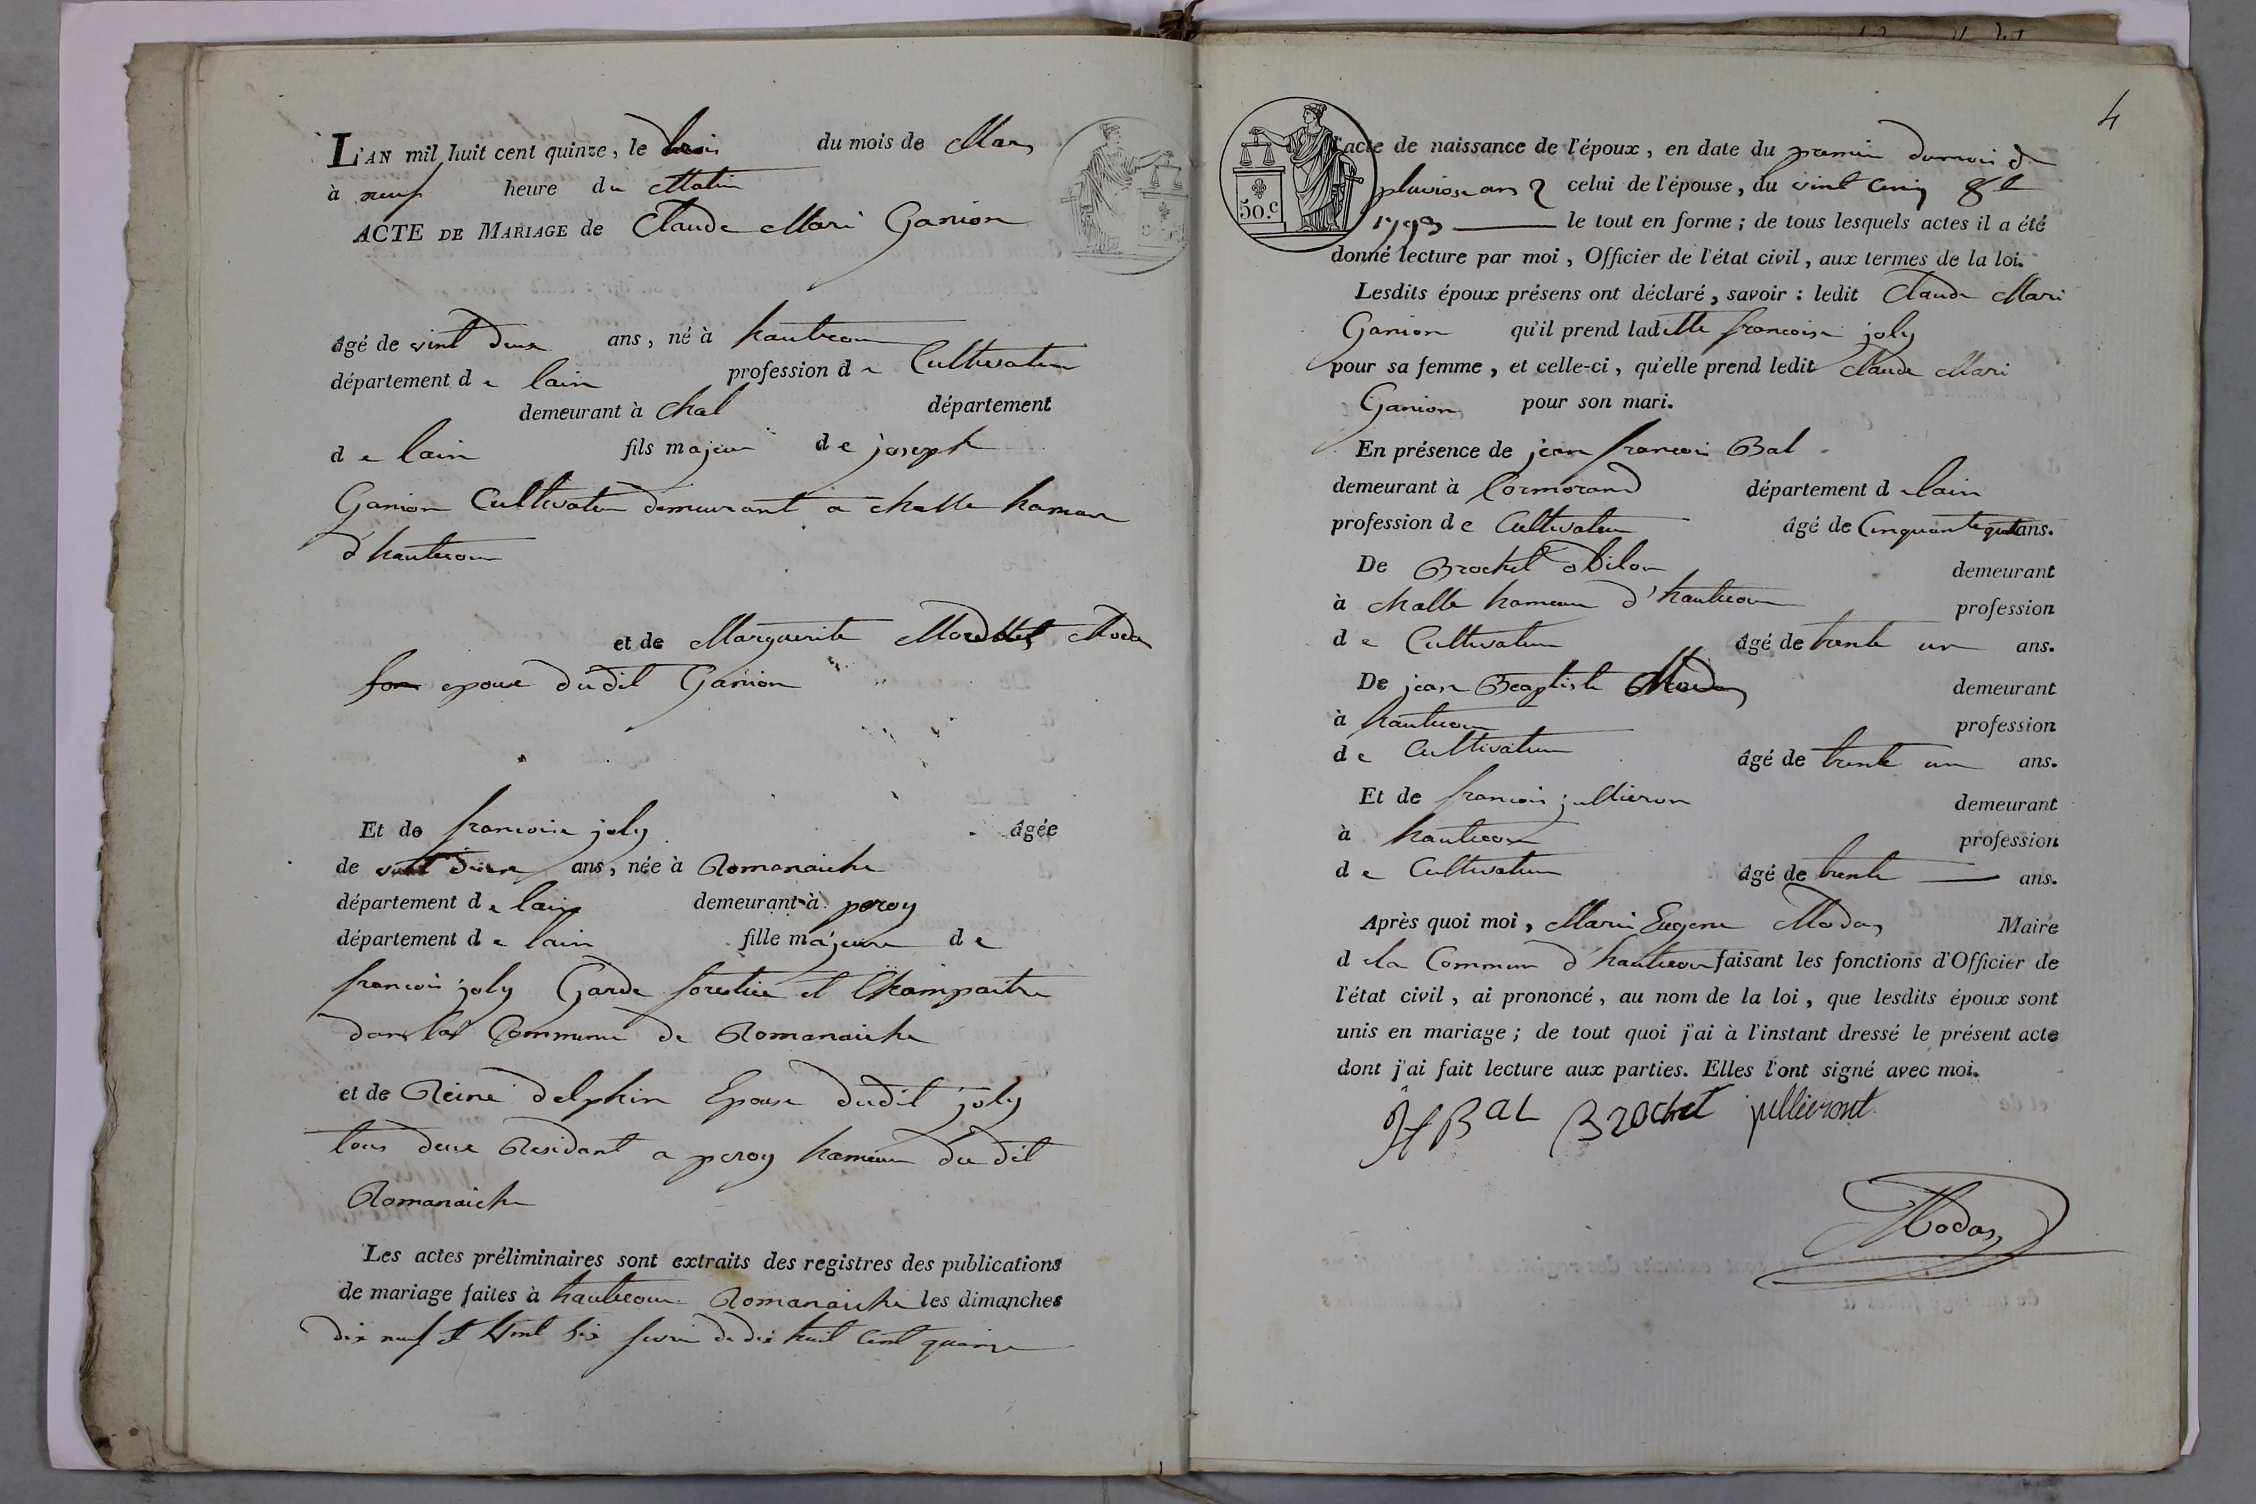 L'AN mil huit cent quinze, le trois du mois de Mars
à neuf heure du Matin
ACTE DE MARIAGE de Claude Mari Ganion
âgé de vint deux ans, né à hautecour
département de lain profession de Cultivateur
demeurant à Chal département
de lain fils majeur de joseph
Ganion Cultivateur demeurant a challe hamau
d'hautecour
et de Marguerite Moda
epouse dudit Ganion
Et de francoise joly âgée
de vint deux ans, née à Romanaiche
département de lain demeurant à peroy
département de lain fille majeure de
francois joly Garde forestier et Champaitre
dans la Commune de Romanaiche
et de Reine delphin Epouse dudit joly
tous deux Residant a peroy hameau du dit
Romanaiche
Les actes préliminaires sont extraits des registres des publications
de mariage faites à hautecour Romanaiche les dimanches
dix neuf et vint six fevrie de dix huit cent quinze
4
50.c
l'acte de naissance de l'époux, en date du premier dumois de
pluviose an 2 celui de l'épouse, du vint cinq 8bre
1793 le tout en forme; de tous lesquels actes il a été
donné lecture par moi, Officier de l'état civil, aux termes de la loi.
Lesdits époux présens ont déclaré, savoir: ledit Claude Mari
Ganion qu'il prend laditte francoise joly
pour sa femme, et celle-ci, qu'elle prend ledit Claude Mari
Ganion pour son mari.
En présence de jean francois Bal
demeurant à Cormorand département de lain
profession de Cultivateur âgé de Cinquante ans.
De Brochet odilon demeurant
à challe hameau d'hautecour profession
de Cultivateur âgé de trente un ans.
De jean Beaptiste Modas demeurant
à hautecour profession
de Cultivateur âgé de trente un ans.
Et de francois jullieron demeurant
à hautecour profession
de Cultivateur âgé de trente ans.
Après quoi moi, Marie Eugene Modas Maire
de la Commune d'hautecour faisant les fonctions d'Officier de
l'état civil, ai prononcé, au nom de la loi, que lesdits époux sont
unis en mariage; de tout quoi j'ai à l'instant dressé le présent acte
dont j'ai fait lecture aux parties. Elles l'ont signé avec moi.
Jf Bal Brochet jullieront
Modas